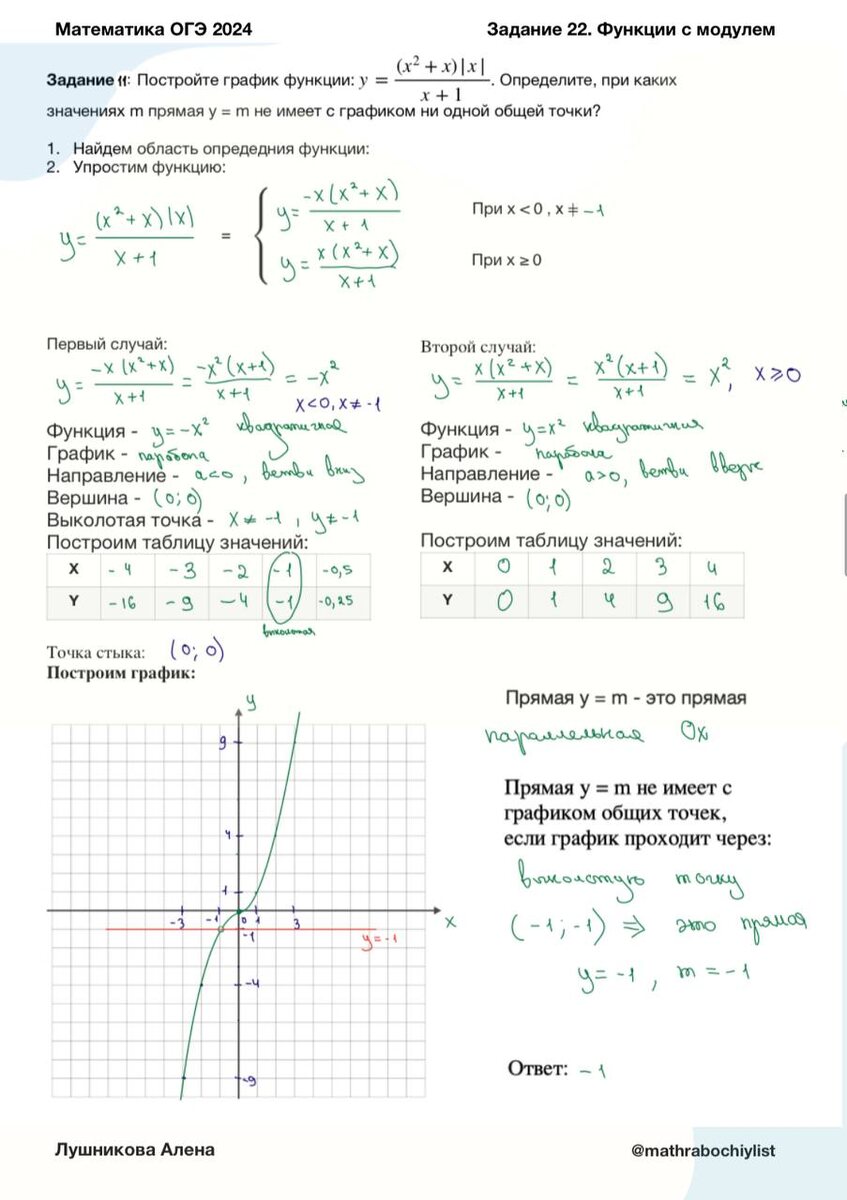 Математика ОГЭ 2024
Задание 22. Функции с модулем
Задание 11: Постройте график функции: y = (x² + x)|x| / x + 1. Определите, при каких
значениях m прямая y = m не имеет с графиком ни одной общей точки?
1. Найдем область опредедния функции:
2. Упростим функцию:
y = (x² + x)|x| / x + 1 = { y = -x(x² + x) / x + 1 При x < 0 , x ≠ -1
y = x(x² + x) / x + 1 При x ≥ 0
Первый случай:
y = -x(x² + x) / x + 1 = -x²(x + 1) / x + 1 = -x²
x < 0, x ≠ -1
Функция - y = -x² квадратичная
График - парабола
Направление - a < 0, ветви вниз
Вершина - (0; 0)
Выколотая точка - x ≠ -1, y ≠ -1
Построим таблицу значений:
X -4 -3 -2 -1 -0,5
Y -16 -9 -4 -1 -0,25
выколотая
Второй случай:
y = x(x² + x) / x + 1 = x²(x + 1) / x + 1 = x², x ⩾ 0
Функция - y = x² квадратичная
График - парабола
Направление - a > 0, ветви вверх
Вершина - (0; 0)
Построим таблицу значений:
X 0 1 2 3 4
Y 0 1 4 9 16
Точка стыка: (0; 0)
Построим график:
y
9
4
1
-3 -1 0 1 3
x
-1
y = -1
-4
-9
Прямая y = m - это прямая
параллельная Ox
Прямая y = m не имеет с
графиком общих точек,
если график проходит через:
выколотую точку
(-1; -1) ⇒ это прямая
y = -1, m = -1
Ответ: -1
Лушникова Алена
@mathrabochiylist